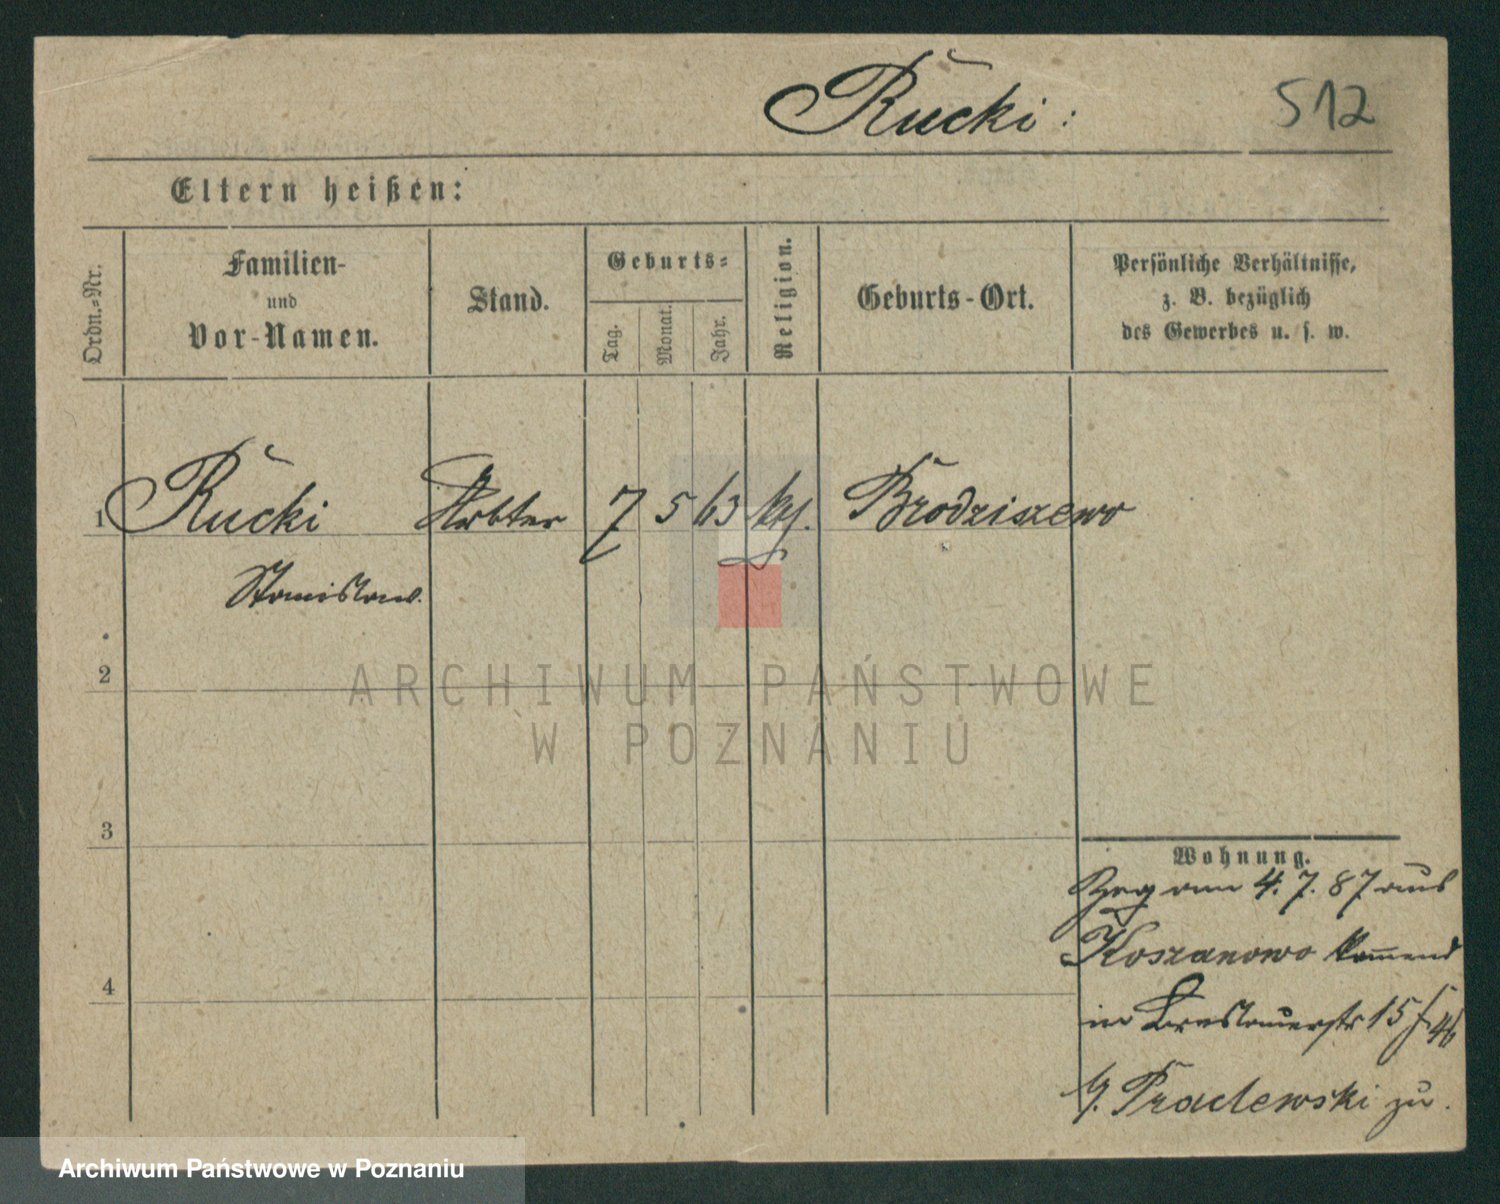 Rucki :
512
Eltern heißen:
Ordn.-Nr.
Familien-
und
Vor-Namen.
Stand.
Geburts-
Tag.
Monat.
Jahr.
Religion.
Geburts-Ort.
Persönliche Verhältnisse,
z. B. bezüglich
des Gewerbes u. s. w.
1 Rucki Arbter 7 5 63 kth. Brodziszewo
Stanislaus.
ARCHIWUM PAŃSTWOWE
W POZNANIU
2
3
4
Wohnung.
Zog am 4. 7. 87 aus
Koszanowo kommend
in Breslauerstr 15
b/. Pradewski zu.
Archiwum Państwowe w Poznaniu